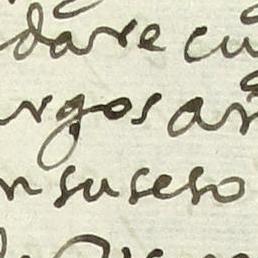 dare cu
rgos an
n suseso